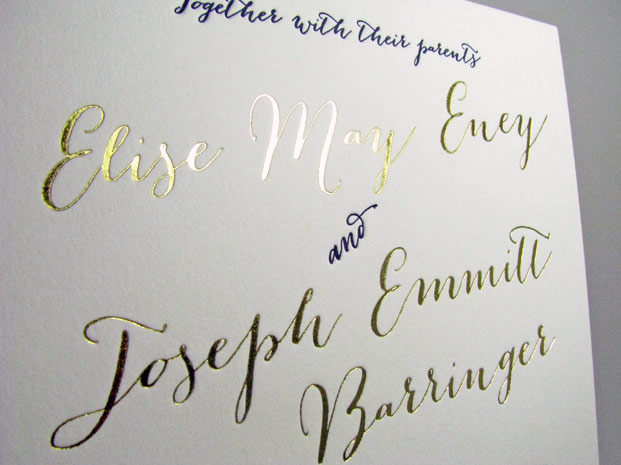 Together with their parents
Elise May Eney
and
Joseph Emmitt
Barringer